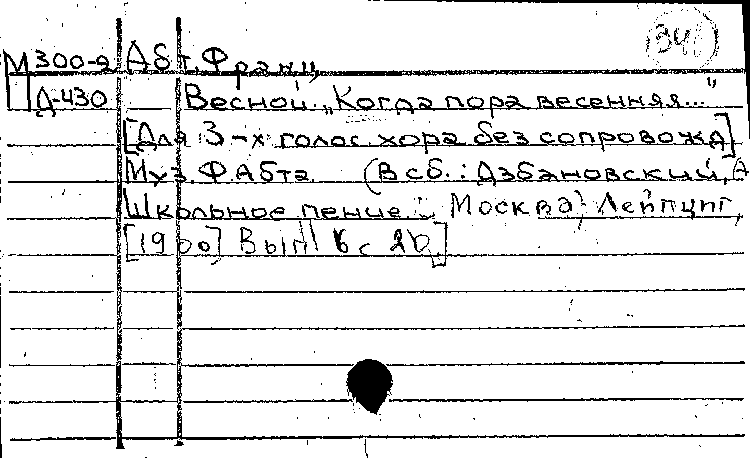 34
М300-2 Абт, Франц
Д-430 Весной. „Когда пора весенняя..."
[Для 3-х голос. хора без сопровожд]
Муз. Ф. Абта. (В сб.: Дзбановский, А
Школьное пение. Москва, Лейпциг,
[1900] Вып с